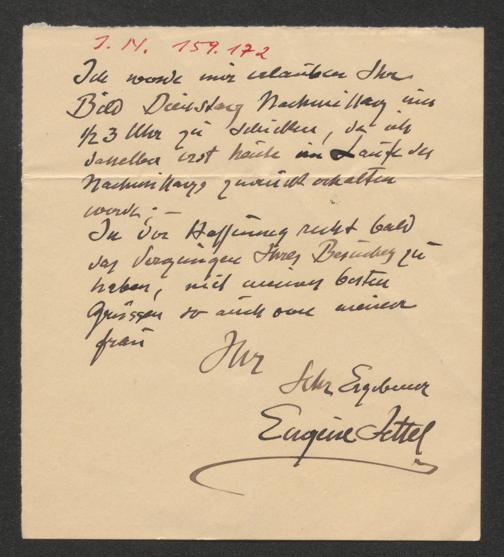 J. N. 159.172
Ich werde mir erlauben Ihr
Bild Dienstag Nachmittag um
1/2 3 Uhr zu schicken, da ich
dasselbe erst heute im Laufe des
Nachmittags zurückerhalten
werde; —
In der Hoffnung recht bald
das Vergnügen Ihres Besuches zu
haben, mit meinen besten
Grüssen so auch von meiner
Frau
Ihr
Sehr Ergebener
Eugène Jettel